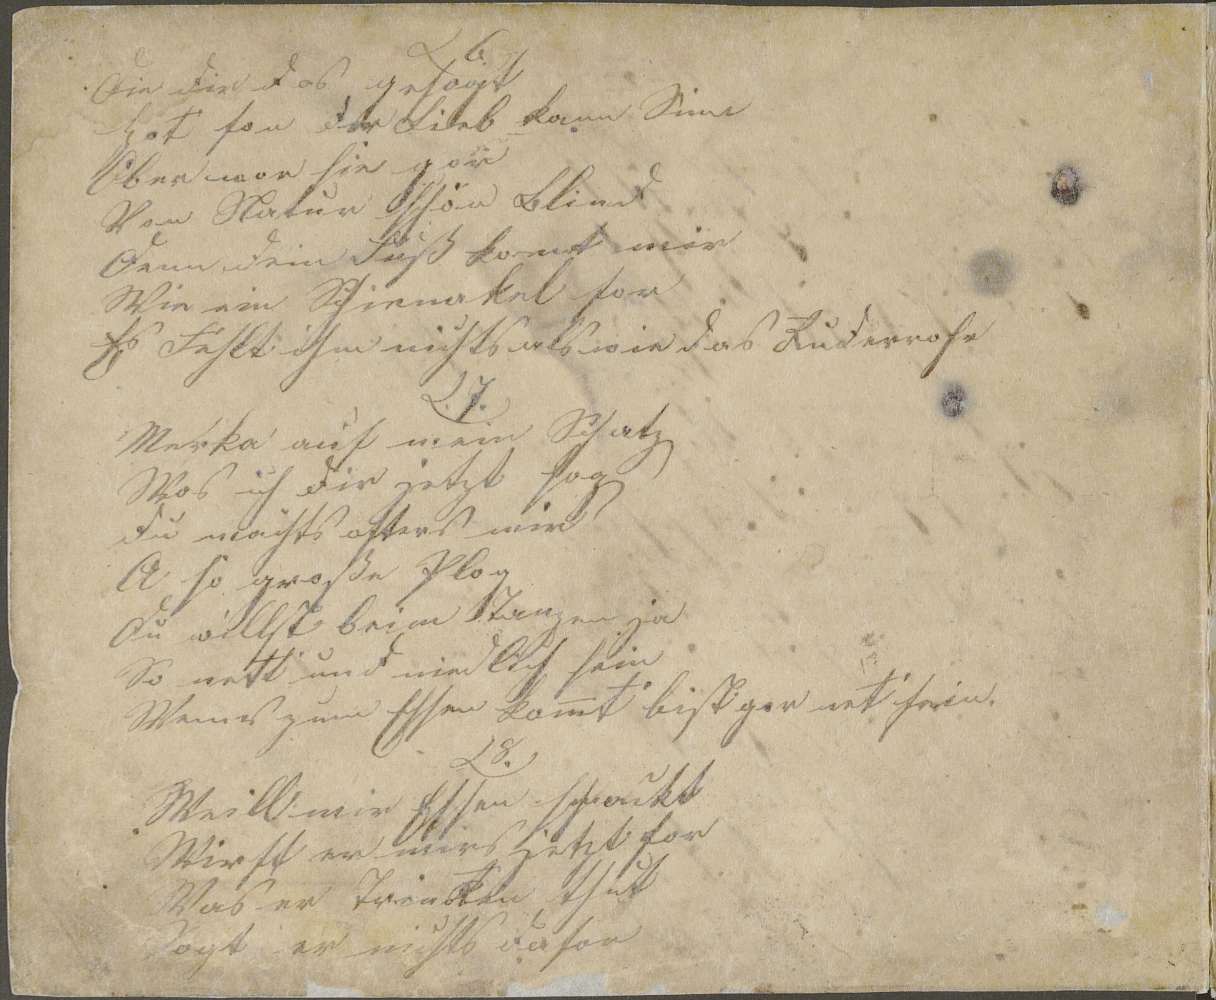 6.
Die dir das gesagt
Hat fon der Lieb kann Sinn
Oder war sie gar
Von Natur schon Blind
Denn dein Fuß komt mir
Wie ein Schienakel for
Es Fehlt ihm nichts als wie das Ruderrohr
7.
Merka auf mein Schatz
Wos ich dir jetzt sog
Du machts ofters mir
A so große Plog
Du willst beim Tanzen ja
So nett und niedlich sein
Wenns zum Essen kommt bist gar net fein.
8.
Weill mir Essen schmeckt
Wirft er mirs jetzt for
Was er Trinken thut
Sagt er nichts dafon